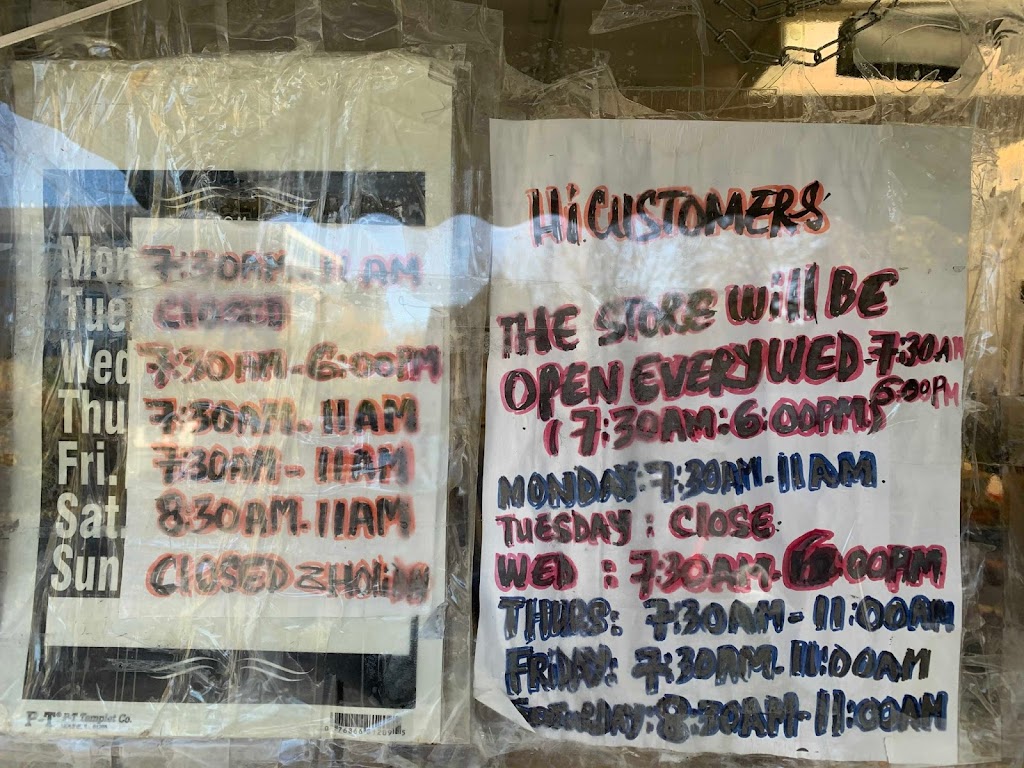 Mon 7:30AM - 11AM
Tue CLOSED
Wed 7:30AM - 6:00PM
Thu 7:30AM - 11AM
Fri. 7:30AM - 11AM
Sat. 8:30AM - 11AM
Sun CLOSED
P-T® P-T Templet Co.
Hi CUSTOMERS
THE STORE will BE
OPEN EVERY WED - 7:30AM
6:00PM
( 7:30AM : 6:00PM )
MONDAY: 7:30AM - 11AM
TUESDAY : CLOSE
WED : 7:30AM - 6:00PM
THURS: 7:30AM - 11:00AM
FRIDAY: 7:30AM - 11:00AM
SATURDAY: 8:30AM - 11:00AM